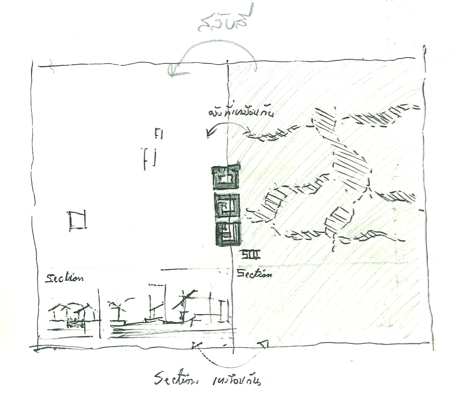 สลับสี
ผังที่เหมือนกัน
Section
Section
Section เหมือนกัน